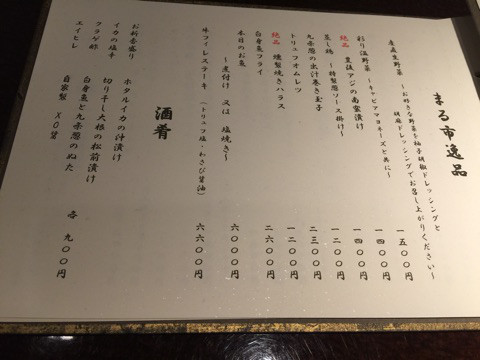 まる市逸品
産直生野菜 ～お好きな野菜を柚子胡椒ドレッシングと
胡麻ドレッシングでお召し上がりください～
一五〇〇円
彩り温野菜 ～キャビアマヨネーズと共に～
一四〇〇円
絶品 豊後アジの南蛮漬け
一四〇〇円
蒸し鶏 ～特製葱ソース掛け～
一二〇〇円
九条葱の出汁巻き玉子
二三〇〇円
トリュフオムレツ
一二〇〇円
絶品 燻製焼きハラス
二六〇〇円
白身魚フライ
本日のお魚
～煮付け 又は 塩焼き～
六〇〇〇円
牛フィレステーキ (トリュフ塩・わさび醤油)
六六〇〇円
酒肴
お新香盛り
ホタルイカの沖漬け
イカの塩辛
切り干し大根の松前漬け
フラゲ酢
白身魚と九条葱のぬた
エイヒレ
自家製 XO醤
各 九〇〇円